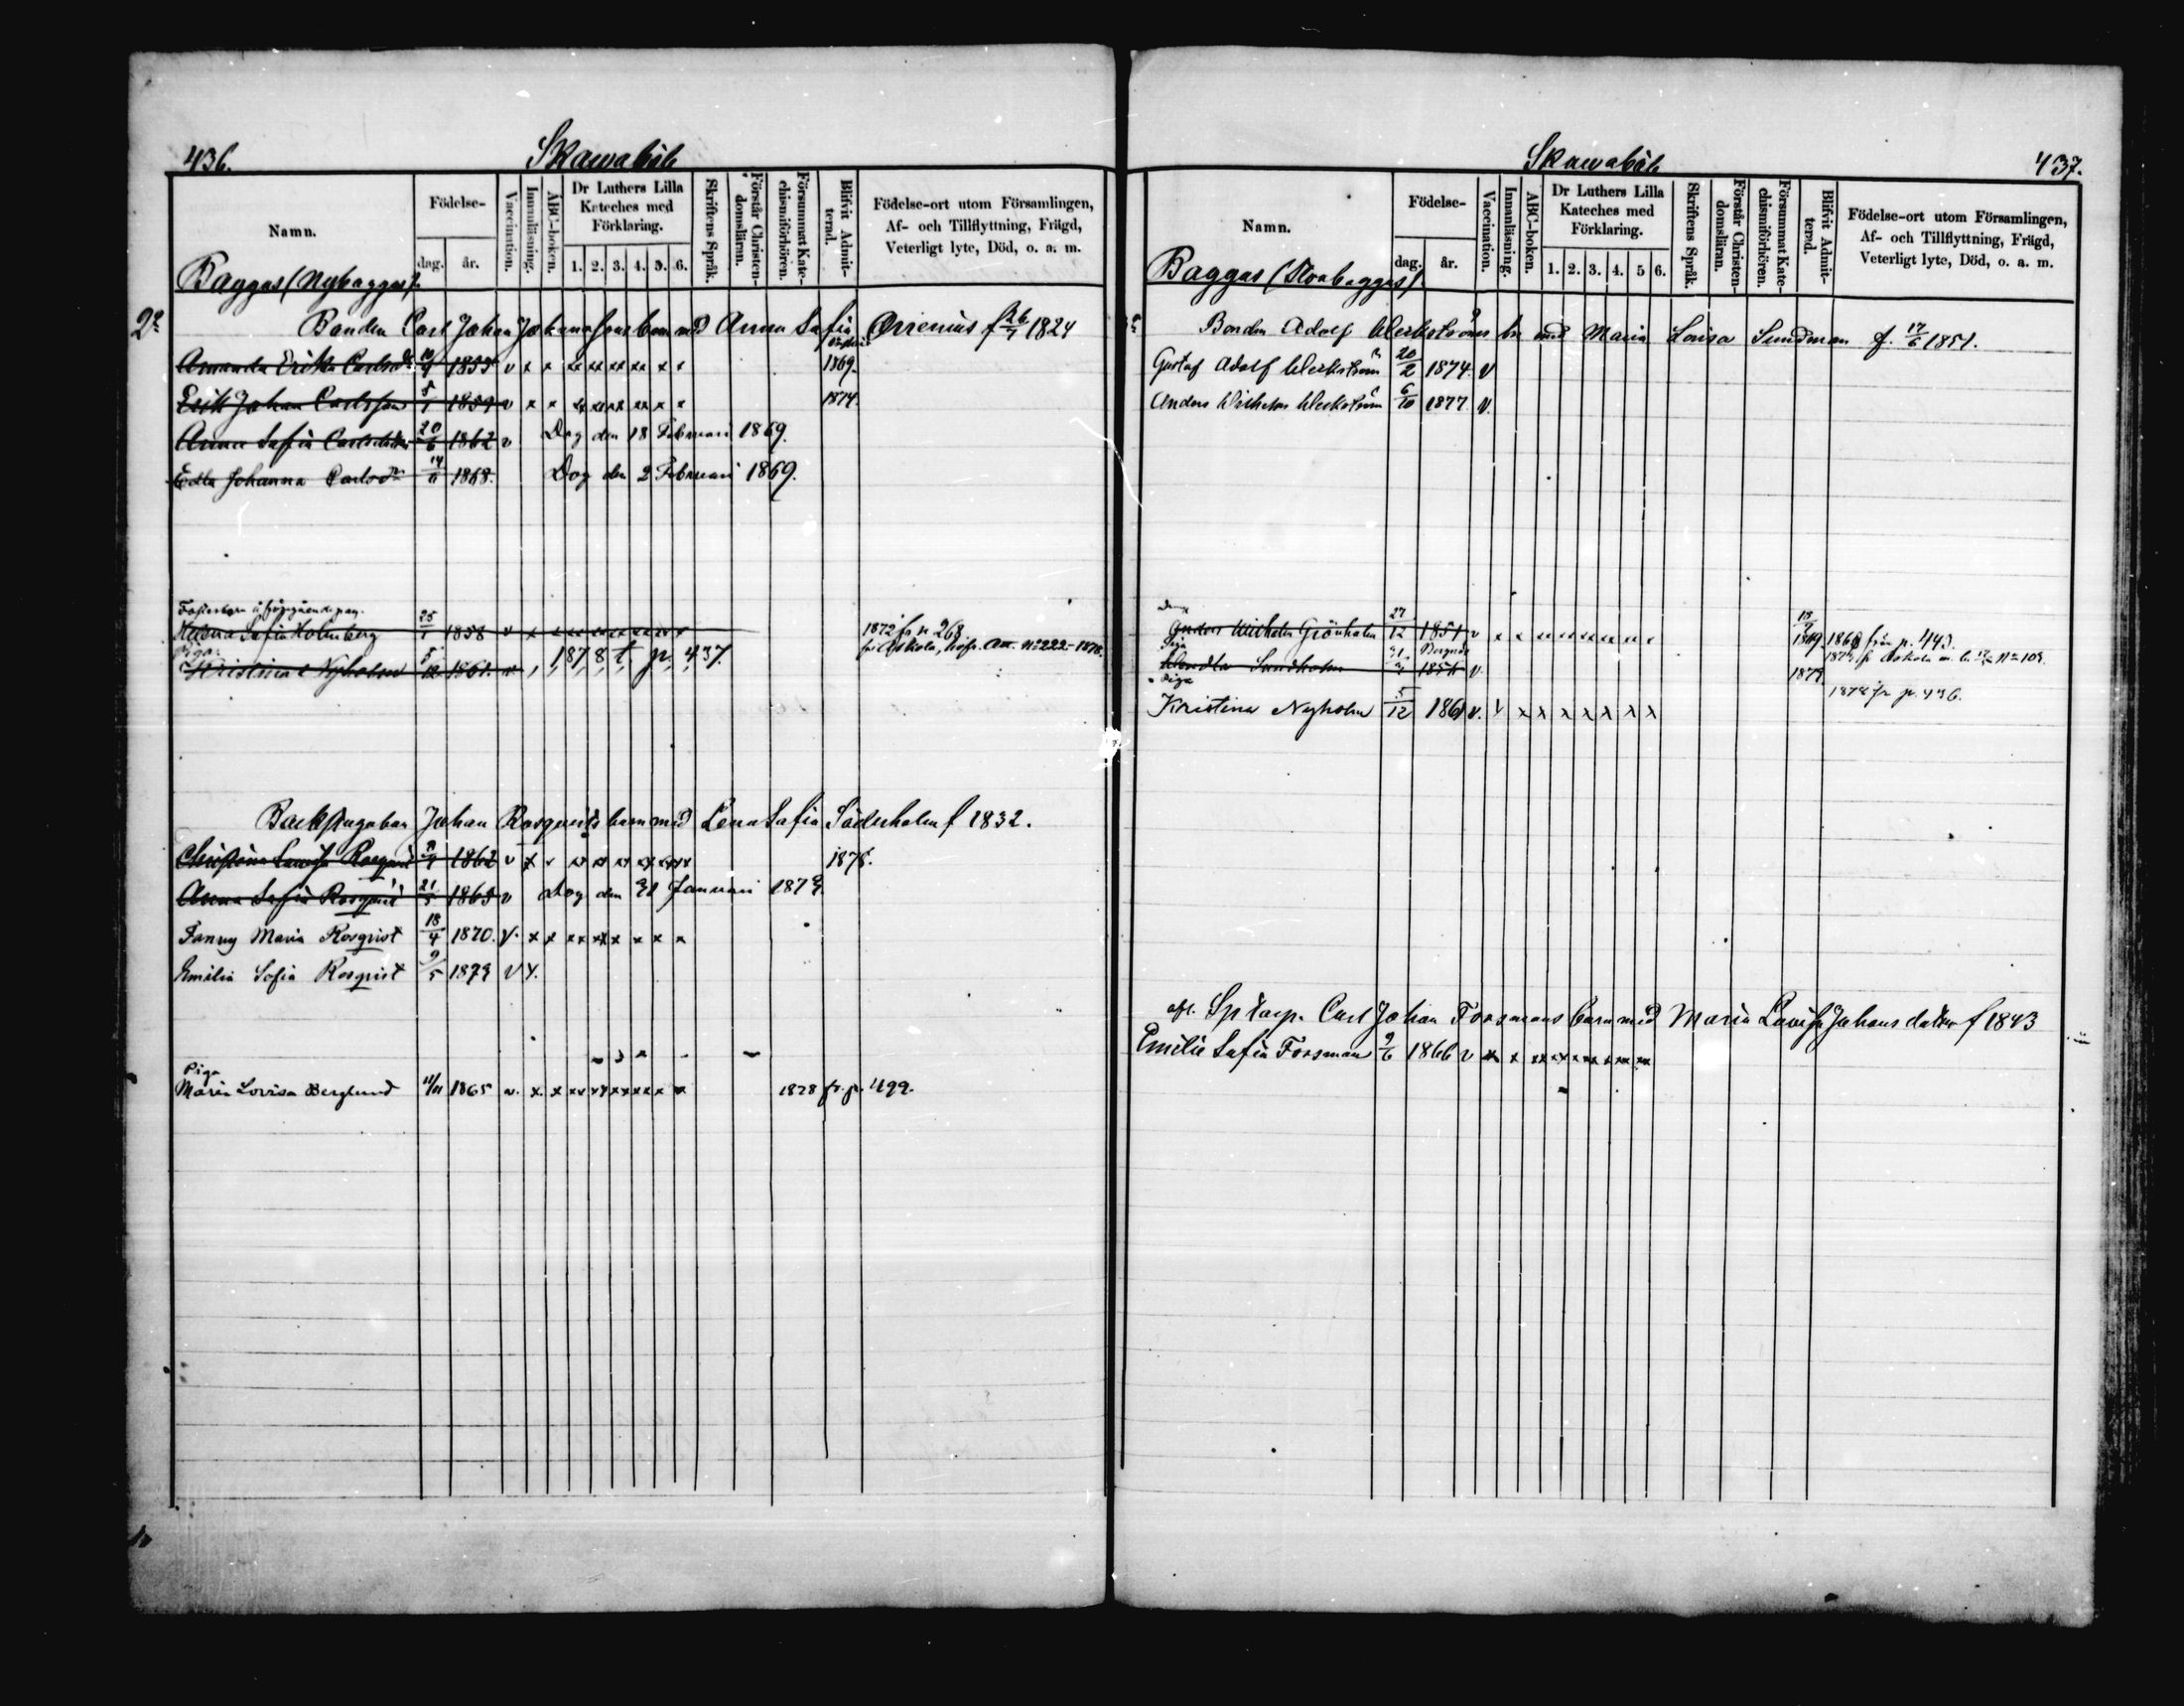 436. Skawabäle
Namn.
Födelse-
dag. år.
Vaccination.
Innanläsning.
ABC-boken.
Dr Luthers Lilla
Kateches med
Förklaring.
1. 2. 3. 4. 5. 6.
Skriftens Språk.
Förstår Christen-
domsläran.
Försummat Kate-
chismiförhören.
Blifvit Admit-
terad.
Födelse-ort utom Församlingen,
Af- och Tillflyttning, Frägd,
Veterligt lyte, Död, o. a. m.
Baggas (Nybaggas).
Bonden Carl Johan Johanssons barn med Anna Safia Orrenius f 26/7 1824
Amanda Erika Carlsdr 1855 v x x xx xx xx xx x x 1869.
Erik Johan Carlsson 1859 v x x x x x 1874.
Anna Safia Carlsdotter 20/6 1862 v Dog den 18 Februari 1869.
Edla Johanna Carlsdr 14/11 1868. Dog den 2 Februari 1869.
Fosterbarn
Helena Safia Holmberg 25/1 1858 v x 1872 fr p 268
fr Askola, No 222-1878.
Piga:
Kristina Nyholm 5/12 1861 v. 1878 t. p. 437.
Johan Rosqvists barn med Lena Safia Söderholm f 1832.
Christina Lovisa Rosqvist 1862 v x 1878.
Anna Safia Rosqvist 21/5 1865 v dog den 31 Januari 1873
Fanny Maria Rosqvist 18/4 1870. V. x x xx xx x x x x
Emilia Sofia Rosqvist 9/5 1873 V x.
Piga
Maria Lovisa Berglund 11/11 1865 v. x. x xx xx xx xx x x 1878 fr. p. 499.
Skawabäle 437.
Namn.
Födelse-
dag. år.
Vaccination.
Innanläsning.
ABC-boken.
Dr Luthers Lilla
Kateches med
Förklaring.
1. 2. 3. 4. 5 6.
Skriftens Språk.
Förstår Christen-
domsläran.
Försummat Kate-
chismiförhören.
Blifvit Admit-
terad.
Födelse-ort utom Församlingen,
Af- och Tillflyttning, Frägd,
Veterligt lyte, Död, o. a. m.
Baggas (Storbaggas)
Bonden Adolf Weckströms bn med Maria Lovisa Sundman f. 17/6 1851.
Gustaf Adolf Weckström 20/2 1874. V
Anders Wilhelm Weckström 6/10 1877. V.
Anders Wilhelm Grönholm 27/12 1851 v x x 1869. 1868 från p. 443.
Piga Borgnäs
Sundholm 1854 V. 1873 fr Askola No 109.
Piga
Kristina Nyholm 5/12 1861 v. V x x x x x x x 1878 fr p. 436.
afl. Sp torp. Carl Johan Forsmans barn med Maria Lovisa Johansdotter f 1843
Emilie Safia Forsman 9/6 1866 v x x xx xx xx xx